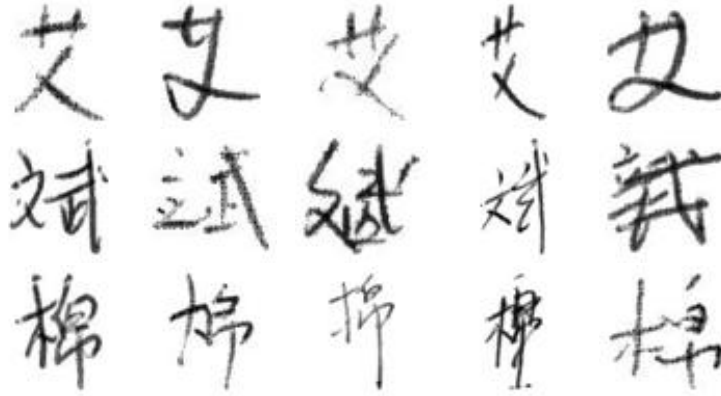 艾艾艾艾艾
斌斌斌斌斌
棉棉棉棉棉